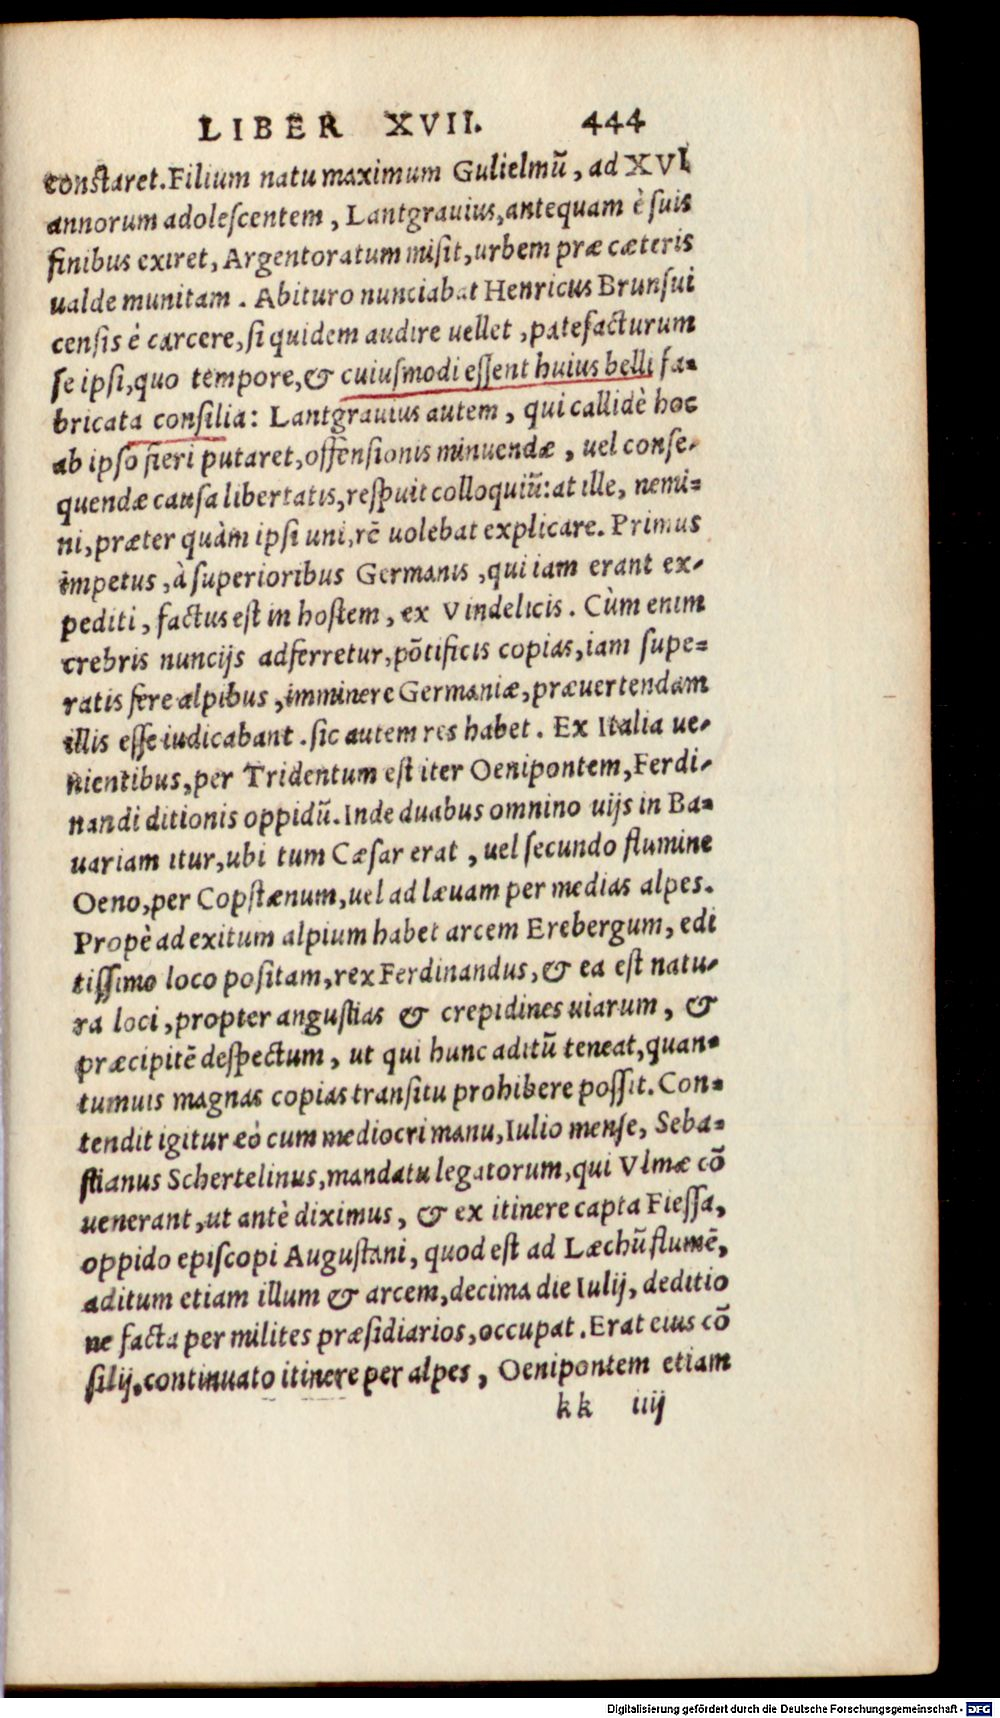 LIBER XVII. 444
constaret. Filium natu maximum Gulielmū, ad XVI
annorum adolescentem, Lantgrauius, antequam è suis
finibus exiret, Argentoratum misit, urbem præ cæteris
ualde munitam. Abituro nunciabat Henricus Brunsui
censis è carcere, si quidem audire uellet, patefacturum
se ipsi, quo tempore, & cuiusmodi essent huius belli fa-
bricata consilia: Lantgrauius autem, qui callidè hoc
ab ipso fieri putaret, offensionis minuendæ, uel conse-
quendæ causa libertatis, respuit colloquiū: at ille, nemi-
ni, præter quàm ipsi uni, rē uolebat explicare. Primus
impetus, à superioribus Germanis, qui iam erant ex-
pediti, factus est in hostem, ex Vindelicis. Cùm enim
crebris nuncijs adferretur, pōtificis copias, iam supe-
ratis fere alpibus, imminere Germaniæ, præuertendam
illis esse iudicabant. sic autem res habet. Ex Italia ue-
nientibus, per Tridentum est iter Oenipontem, Ferdi-
nandi ditionis oppidū. Inde duabus omnino uijs in Ba-
uariam itur, ubi tum Cæsar erat, uel secundo flumine
Oeno, per Copstænum, uel ad læuam per medias alpes.
Propè ad exitum alpium habet arcem Erebergum, edi
tissimo loco positam, rex Ferdinandus, & ea est natu-
ra loci, propter angustias & crepidines uiarum, &
præcipitē despectum, ut qui hunc aditū teneat, quan-
tumuis magnas copias transitu prohibere possit. Con-
tendit igitur eò cum mediocri manu, Iulio mense, Seba-
stianus Schertelinus, mandatu legatorum, qui Vlmæ cō
uenerant, ut antè diximus, & ex itinere capta Fiessa,
oppido episcopi Augustani, quod est ad Læchū flumē,
aditum etiam illum & arcem, decima die Iulij, deditio
ne facta per milites præsidiarios, occupat. Erat eius cō
silij, continuato itinere per alpes, Oenipontem etiam
kk iiij
Digitalisierung gefördert durch die Deutsche Forschungsgemeinschaft - DFG